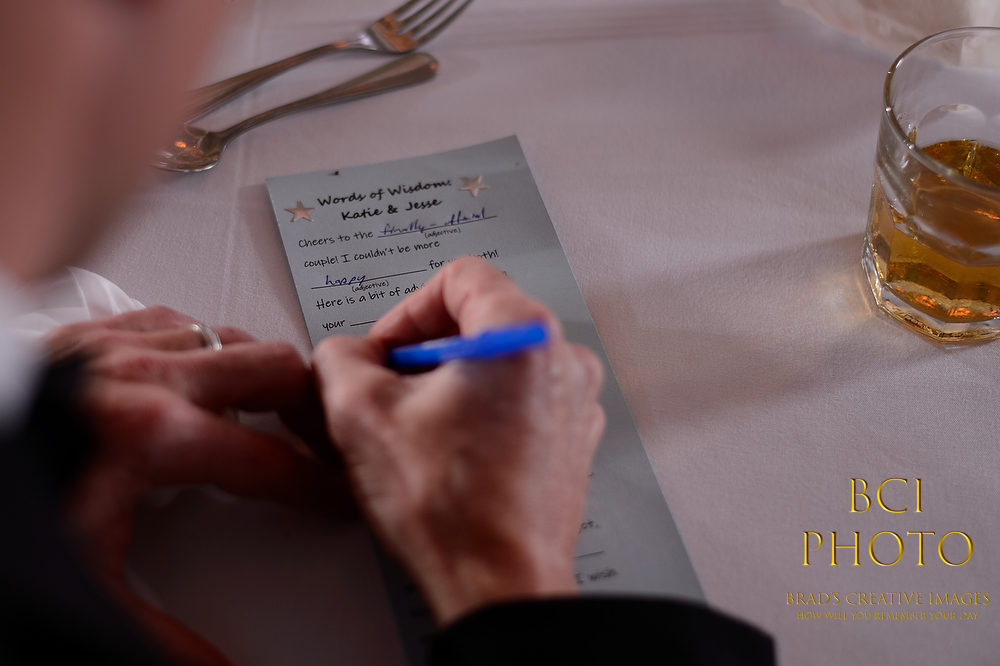 Words of Wisdom:
Katie & Jesse
Cheers to the finally-official
(adjective)
couple! I couldn't be more
happy for
(adjective)
Here is a bit of
your
I wish
BCI
PHOTO
BRAD'S CREATIVE IMAGES
HOW WILL YOU REMEMBER YOUR DAY